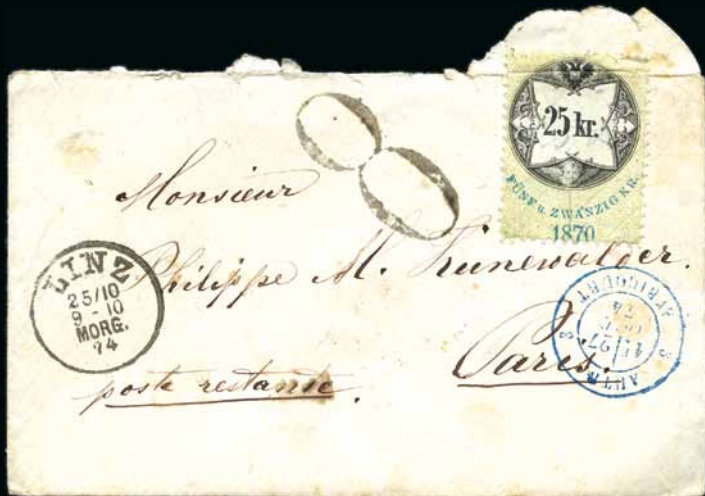 25 kr.
FÜNF u. ZWANZIG KR.
1870
8
Monsieur
Philippe M. Künewalder.
Paris.
poste restante.
LINZ
25/10
9 - 10
MORG.
74
3 AUTR.
AVRICOURT 3
27
74